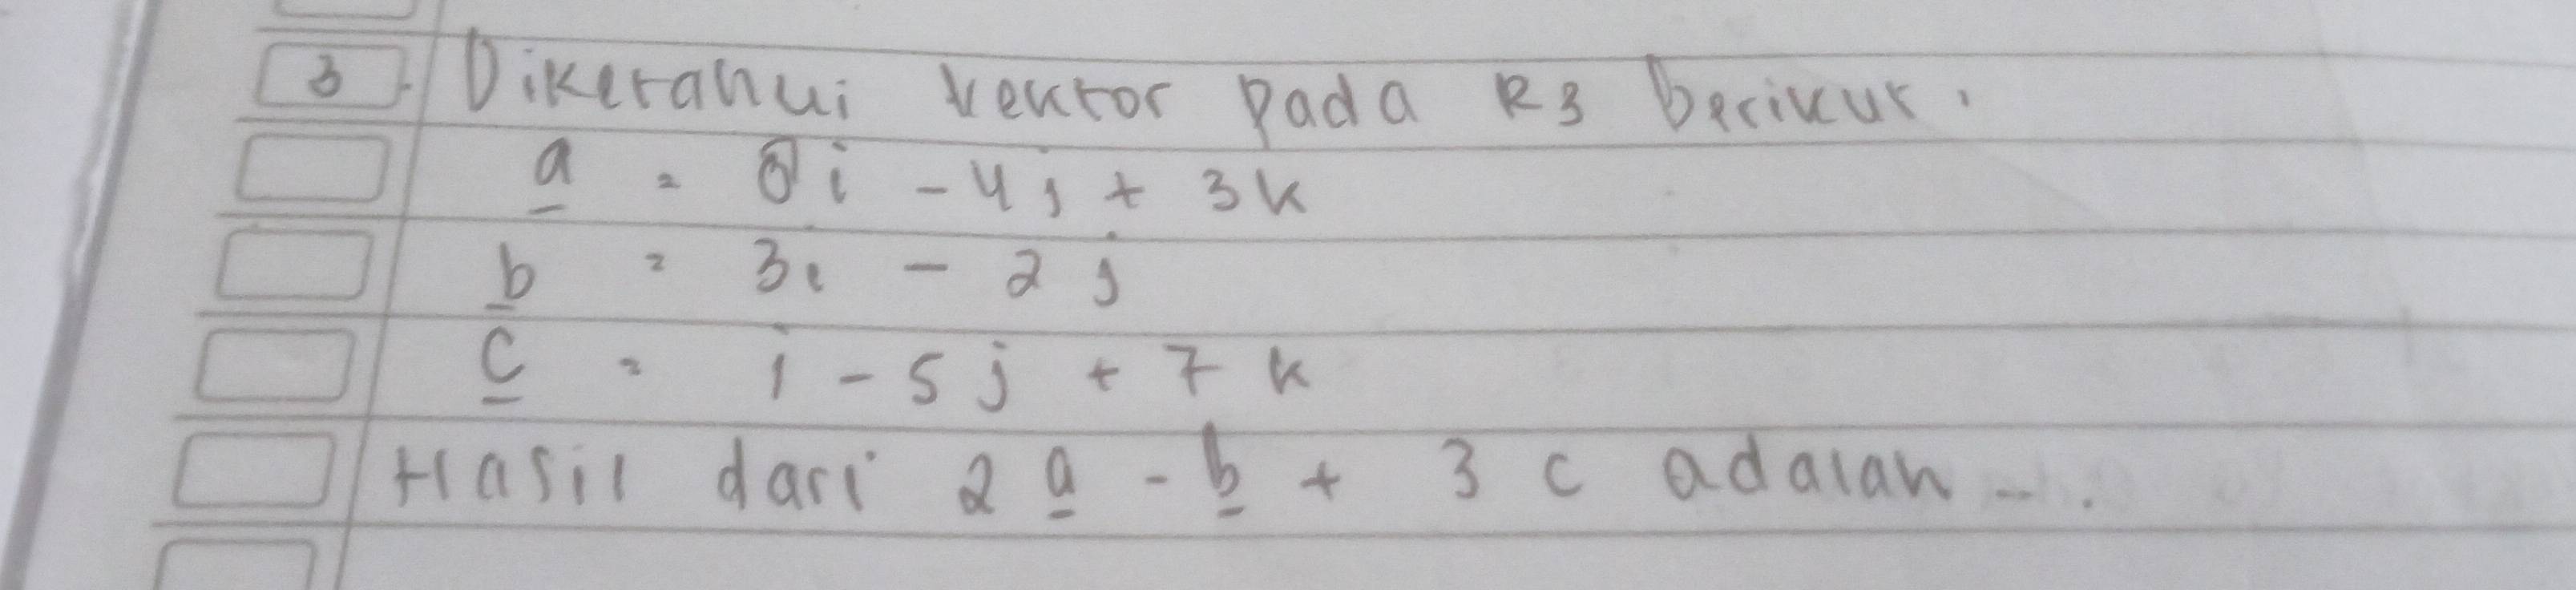 3. Diketahui vektor pada R3 berikut.
a = i - 4j + 3k
b = 3i - 2j
c = i - 5j + 7k
Hasil dari 2a - b + 3c adalah ....